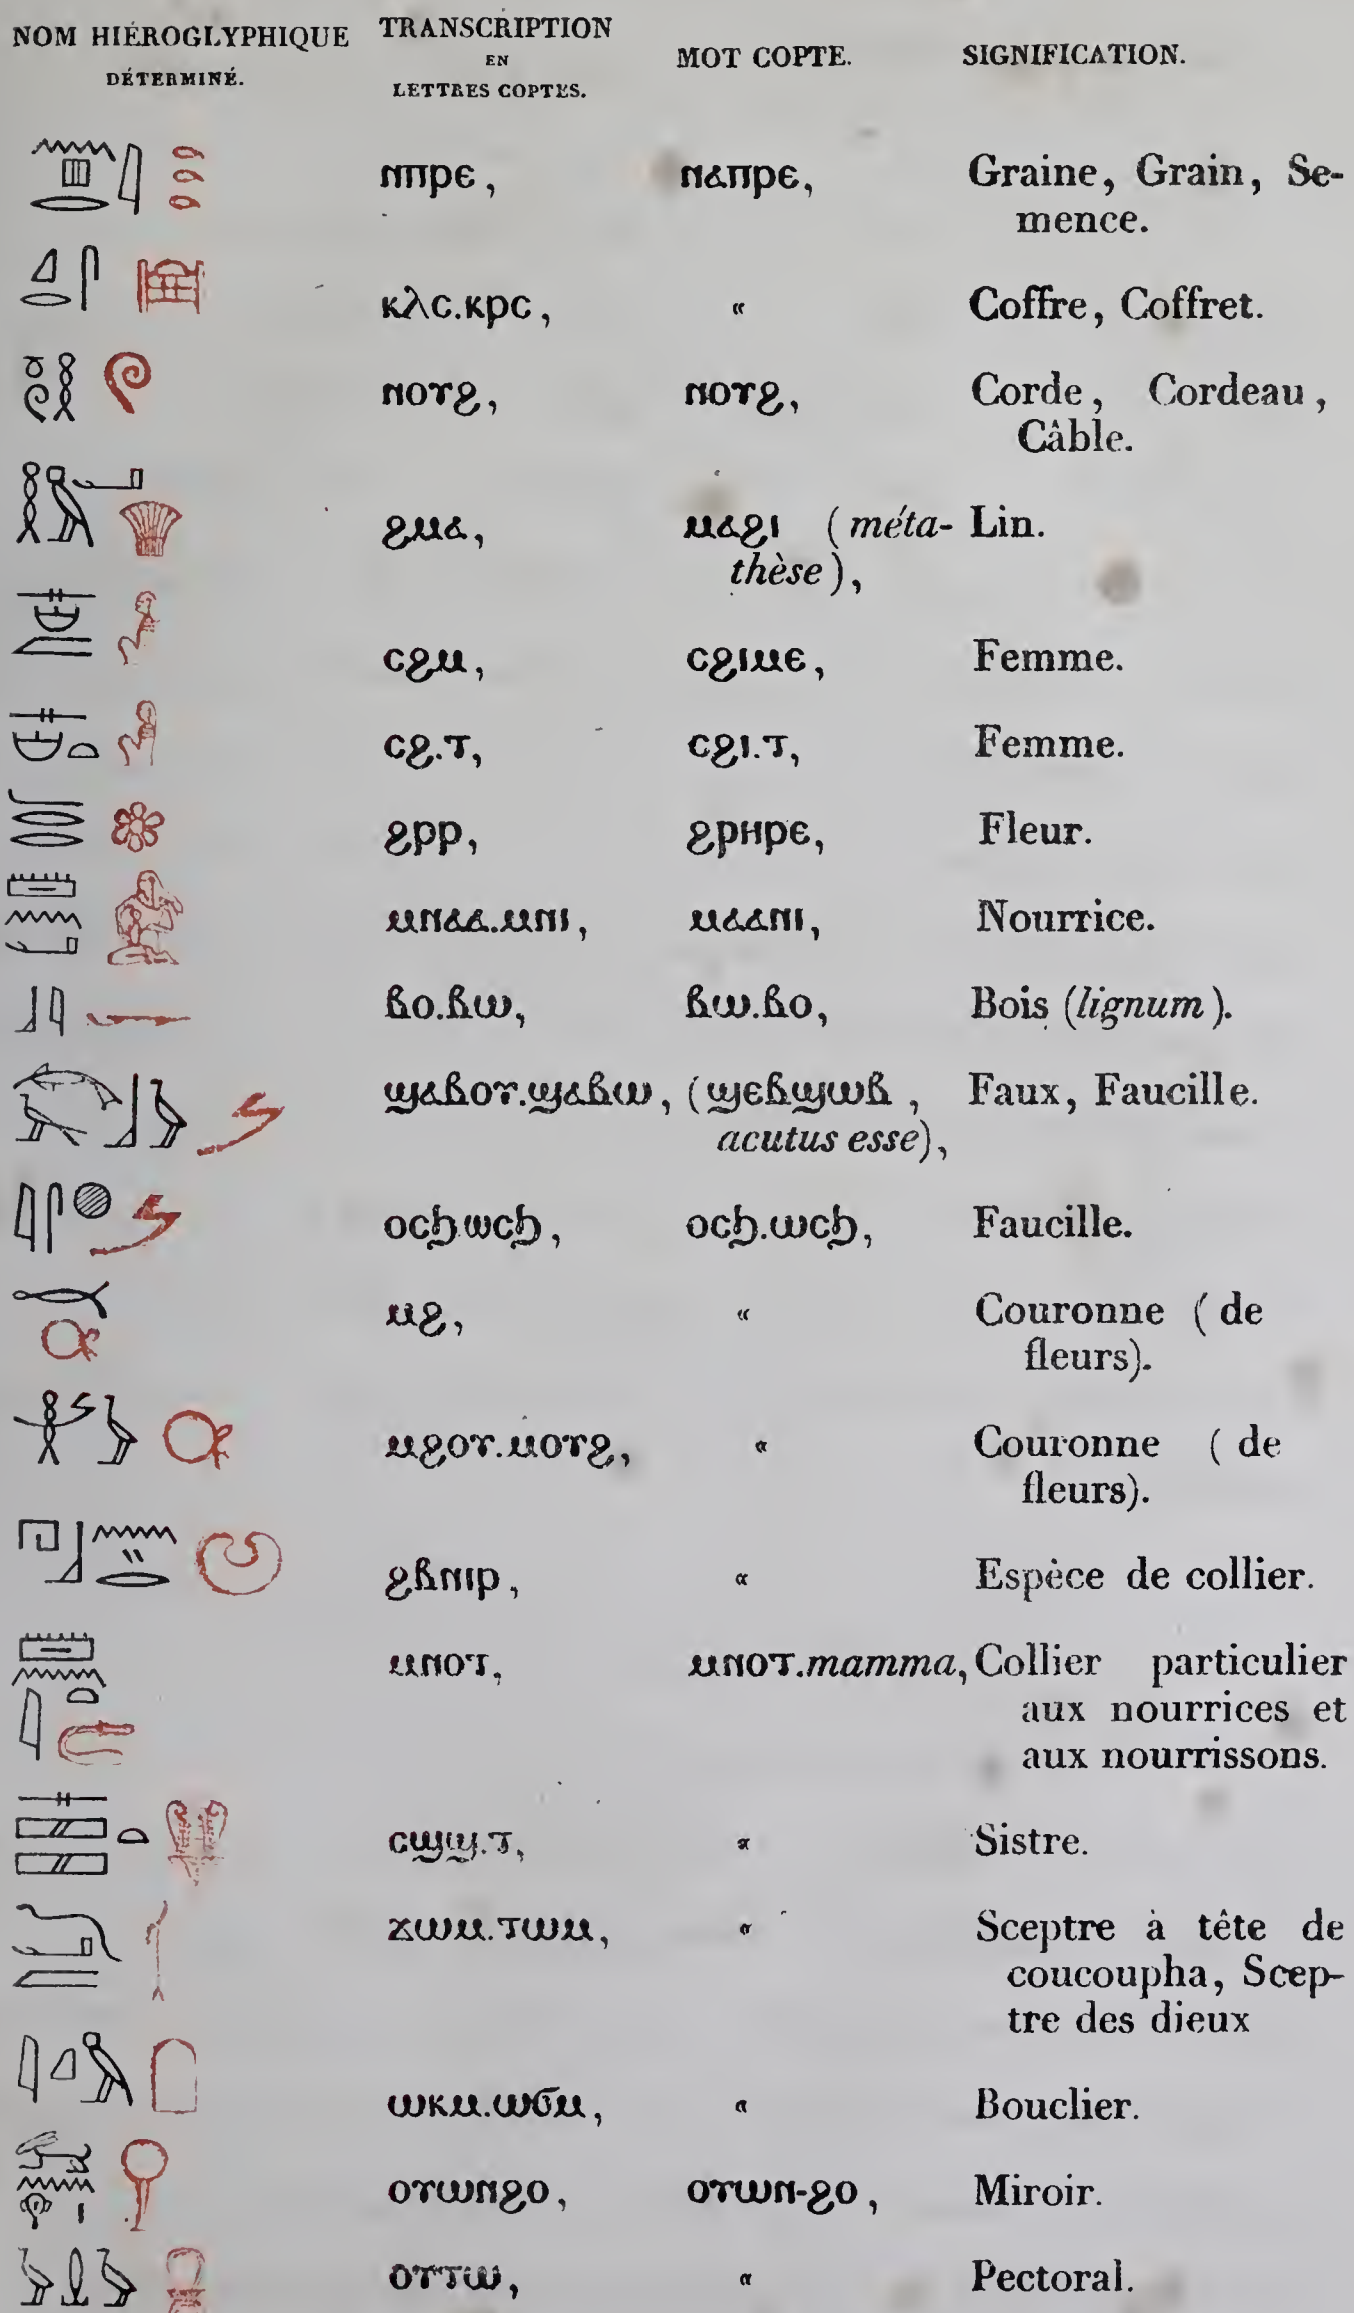 NOM HIÉROGLYPHIQUE DÉTERMINÉ.
TRANSCRIPTION EN LETTRES COPTES.
MOT COPTE.
SIGNIFICATION.
ⲛⲡⲣⲉ, ⲛⲁⲡⲣⲉ, Graine, Grain, Se-
mence.
ⲕⲗⲥ.ⲕⲣⲥ, « Coffre, Coffret.
ⲛⲟⲩϩ, ⲛⲟⲩϩ, Corde, Cordeau,
Câble.
ϩⲙⲁ, ⲙⲁϩⲓ (méta- Lin.
thèse),
ⲥϩⲙ, ⲥϩⲓⲙⲉ, Femme.
ⲥϩ.ⲧ, ⲥϩⲓ.ⲧ, Femme.
ϩⲣⲣ, ϩⲣⲏⲣⲉ, Fleur.
ⲙⲛⲁⲁ.ⲙⲛⲓ, ⲙⲁⲁⲛⲓ, Nourrice.
ⲃⲟ.ⲃⲱ, ⲃⲱ.ⲃⲟ, Bois (lignum).
ϣⲁⲃⲟⲩ.ϣⲁⲃⲱ, (ϣⲉⲃϣⲱⲃ, Faux, Faucille.
acutus esse),
ⲟⲥϧ.ⲱⲥϧ, ⲟⲥϧ.ⲱⲥϧ, Faucille.
ⲙϩ, « Couronne (de
fleurs).
ⲙϩⲟⲩ.ⲙⲟⲩϩ, « Couronne (de
fleurs).
ϩⲃⲛⲓⲣ, « Espèce de collier.
ⲙⲛⲟⲧ, ⲙⲛⲟⲧ.mamma, Collier particulier
aux nourrices et
aux nourrissons.
ⲥϣϣ.ⲧ, « Sistre.
ϫⲱⲙ.ⲧⲱⲙ, « Sceptre à tête de
coucoupha, Scep-
tre des dieux
ⲱⲕⲙ.ⲱϭⲙ, « Bouclier.
ⲟⲩⲱⲛϩⲟ, ⲟⲩⲱⲛ-ϩⲟ, Miroir.
ⲟⲩⲧⲱ, « Pectoral.